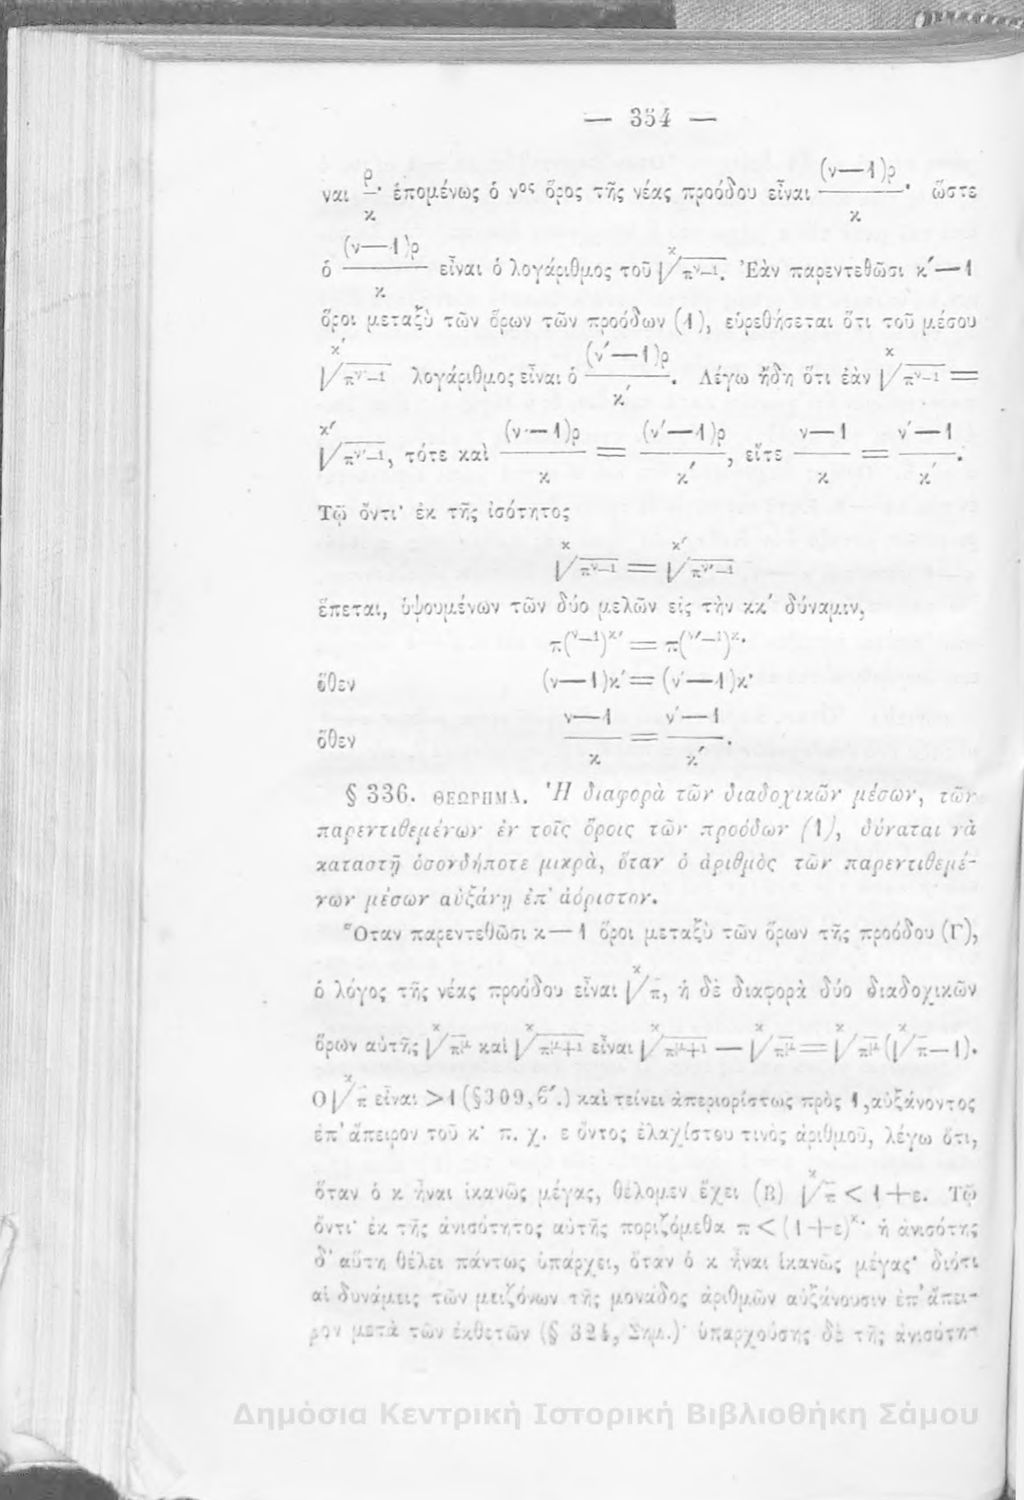 — 354 —
ναι ρ/κ· ἑπομένως ὁ νος ὅρος τῆς νέας προόδου εἶναι (ν—1)ρ/κ· ὥστε
ὁ (ν—1)ρ/κ εἶναι ὁ λογάριθμος τοῦ κ√πν—1. Ἐὰν παρεντεθῶσι κ′—1
ὅροι μεταξὺ τῶν ὅρων τῶν προόδων (1), εὑρεθήσεται ὅτι τοῦ μέσου
κ′√πν′—1 λογάριθμος εἶναι ὁ (ν′—1)ρ/κ′. Λέγω ἤδη ὅτι ἐὰν κ√πν—1 =
κ′√πν′—1, τότε καὶ (ν—1)ρ/κ = (ν′—1)ρ/κ′, εἴτε ν—1/κ = ν′—1/κ′.
Τῷ ὄντι· ἐκ τῆς ἰσότητος
κ√πν—1 = κ′√πν′—1
ἕπεται, ὑψουμένων τῶν δύο μελῶν εἰς τὴν κκ′ δύναμιν,
π(ν—1)κ′ = π(ν′—1)κ·
ὅθεν (ν—1)κ′ = (ν′—1)κ·
ὅθεν ν—1/κ = ν′—1/κ′.
§ 336. ΘΕΩΡΗΜΑ. Ἡ διαφορὰ τῶν διαδοχικῶν μέσων, τῶν
παρεντιθεμένων ἐν τοῖς ὅροις τῶν προόδων (1), δύναται νὰ
καταστῇ ὁσονδήποτε μικρὰ, ὅταν ὁ ἀριθμὸς τῶν παρεντιθεμέ-
νων μέσων αὐξάνῃ ἐπ' ἀόριστον.
Ὅταν παρεντεθῶσι κ—1 ὅροι μεταξὺ τῶν ὅρων τῆς προόδου (Γ),
ὁ λόγος τῆς νέας προόδου εἶναι κ√π, ἡ δὲ διαφορὰ δύο διαδοχικῶν
ὅρων αὐτῆς κ√πμ καὶ κ√πμ+1 εἶναι κ√πμ+1 — κ√πμ = κ√πμ(κ√π—1).
Ο κ√π εἶναι >1 (§309,6′.) καὶ τείνει ἀπεριορίστως πρὸς 1, αὐξάνοντος
ἐπ' ἄπειρον τοῦ κ· π. χ. ε ὄντος ἐλαχίστου τινὸς ἀριθμοῦ, λέγω ὅτι,
ὅταν ὁ κ ἦναι ἱκανῶς μέγας, θέλομεν ἔχει (Β) κ√π < 1+ε. Τῷ
ὄντι· ἐκ τῆς ἀνισότητος αὐτῆς ποριζόμεθα π < (1+ε)κ· ἡ ἀνισότης
δ' αὕτη θέλει πάντως ὑπάρχει, ὅταν ὁ κ ἦναι ἱκανῶς μέγας· διότι
αἱ δυνάμεις τῶν μειζόνων τῆς μονάδος ἀριθμῶν αὐξάνουσιν ἐπ' ἄπει-
ρον μετὰ τῶν ἐκθετῶν (§ 324, Σημ.)· ὑπαρχούσης δὲ τῆς ἀνισότη-
Δημόσια Κεντρική Ιστορική Βιβλιοθήκη Σάμου